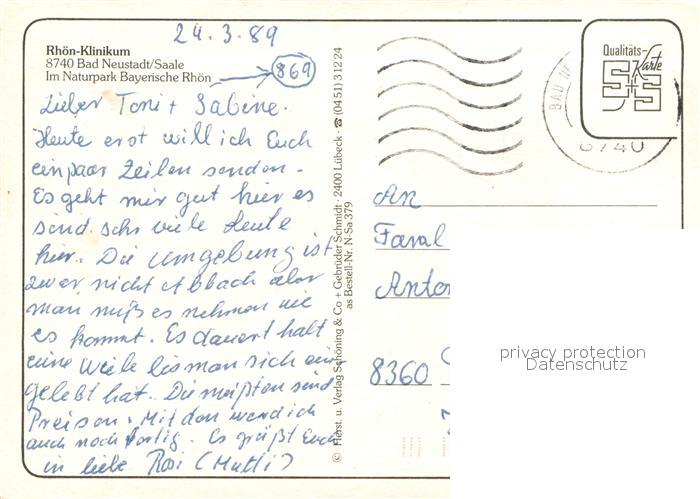 24.3.89
Rhön-Klinikum
8740 Bad Neustadt/Saale
Im Naturpark Bayerische Rhön
869
Lieber Toni + Sabine.
Heute erst will ich Euch
ein paar Zeilen senden.
Es geht mir gut hier es
sind sehr viele Leute
hier. Die Umgebung ist
zwar nicht Abbach aber
man muß es nehmen wie
es kommt. Es dauert halt
eine Weile bis man sich ein
gelebt hat. Die meisten sind
Preisen. Mit den werd ich
auch noch fertig. Es grüßt Euch
in liebe Rosi (Mutti)
© Horst. u. Verlag Schöning & Co + Gebrüder Schmidt · 2400 Lübeck · ☎ (04 51) 3 12 24
as Bestell-Nr. N-Sa 379
Qualitäts-
Karte
S+S
BAD NE
8740
An
Anton
8360
privacy protection
Datenschutz